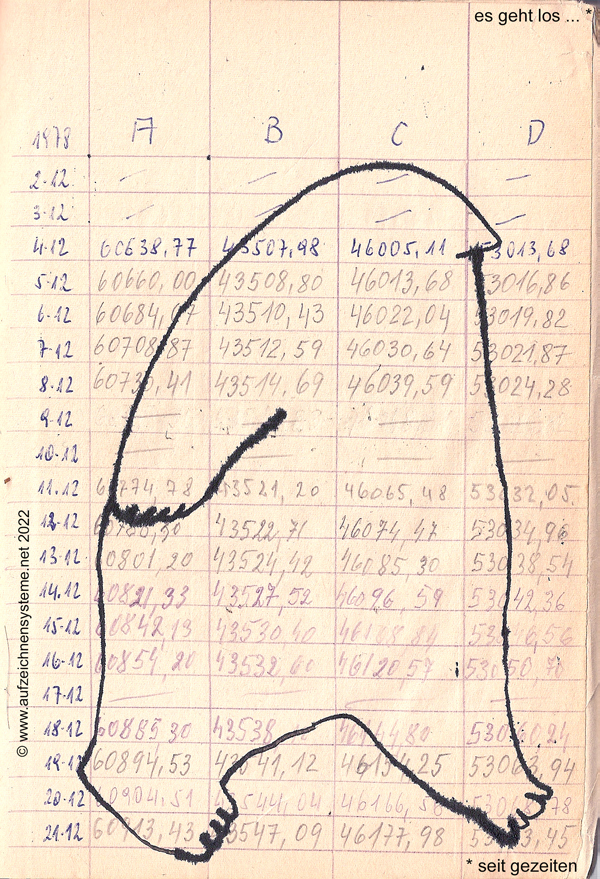 es geht los ... *
1978 A B C D
2-12 – – – –
3-12 – – – –
4-12 60638,77 43507,98 46005,11 53013,68
5-12 60660,00 43508,80 46013,68 53016,86
6-12 43510,43 46022,04 53019,82
7-12 60708,87 43512,59 46030,64 53021,87
8-12 43514,69 46039,59 53024,28
9-12 – – – –
10-12 – – – –
11.12 43521,20 46065,48 53032,05
12-12 43522,71 46074,47 53034,96
13-12 60801,20 43524,42 46085,30 53038,54
14.12 60821,33 43527,52 46096,59 53042,36
15-12 60842,13 43530,40
16-12 60854,20 46120,57
17-12 – – –
18-12 60885 30 43538
19-12 60894,53 43541,12 46154,25 53063,94
20-12 60904,51 43544,04
21-12 60913,43 43547,09 46177,98
© www.aufzeichnensysteme.net 2022
* seit gezeiten